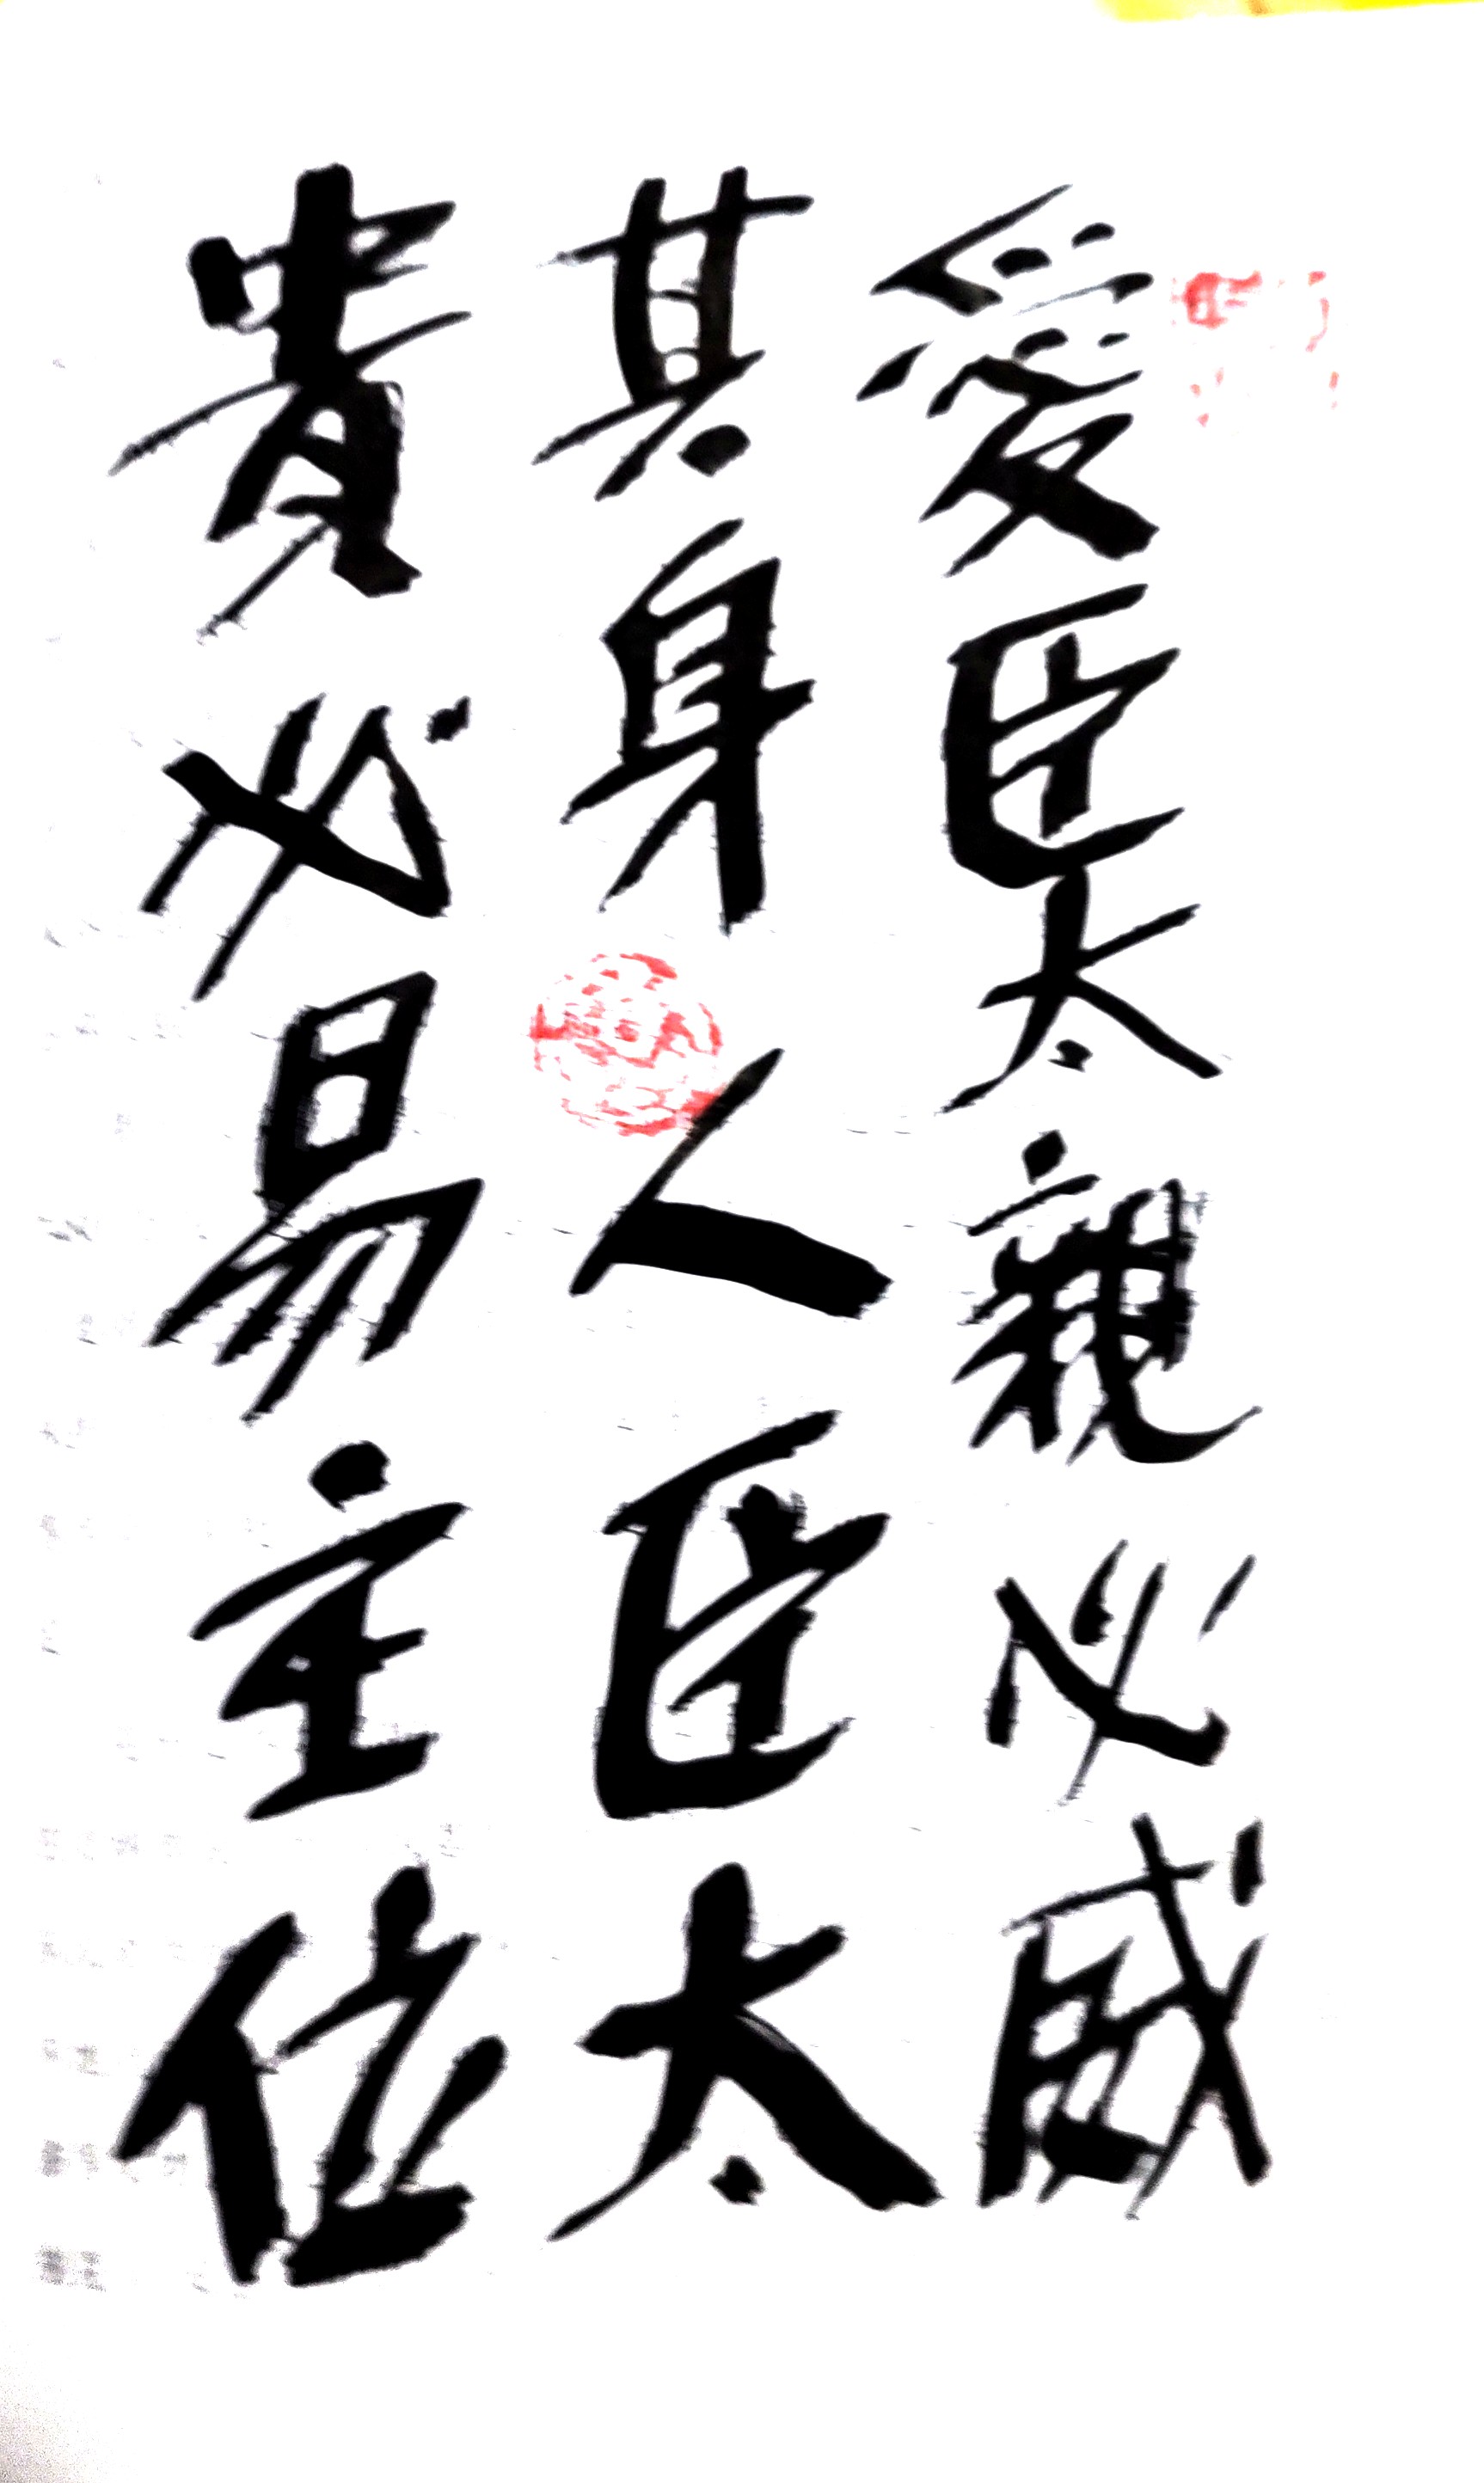 愛臣太親必威
其身人臣太
貴必易主位